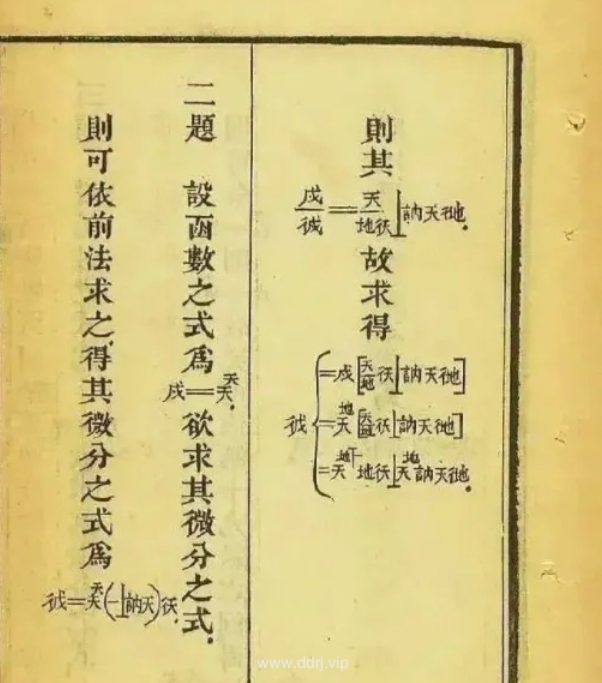 則其
戌/彳戌=天/地彳天⊥訥天彳地.
故求得
彳戌
=戌[天/地彳天⊥訥天彳地]
=天^地[天/地彳天⊥訥天彳地]
=天^地丅一地彳天⊥天^地訥天彳地.
二題 設函數之式爲戌=天^天.欲求其微分之式.
則可依前法求之.得其微分之式爲彳戌=天^天(一⊥訥天)彳天.
www.ddrj.vip